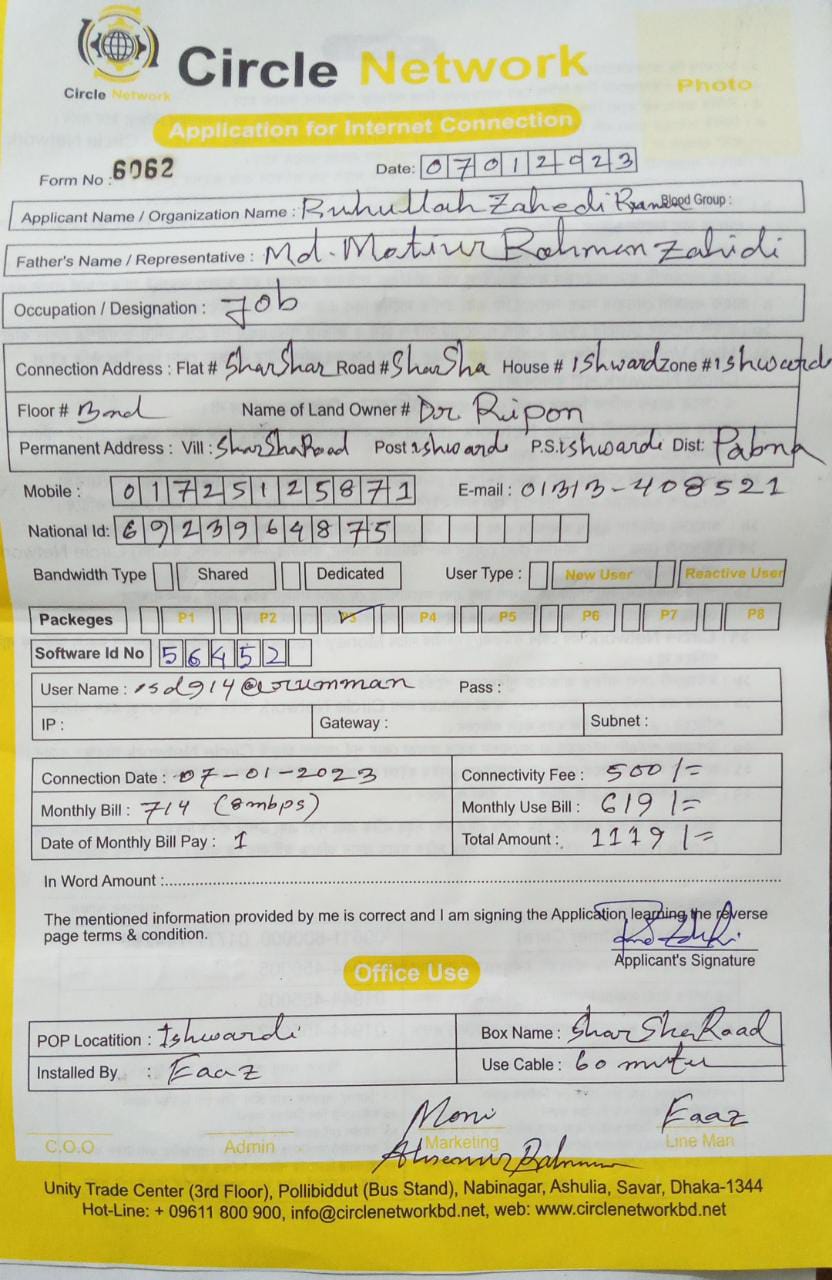 Circle Network
Circle Network
Photo
Application for Internet Connection
Form No : 6062
Date: 07012023
Applicant Name / Organization Name : Ruhullah Zahedi Blood Group :
Father's Name / Representative : Md. Matiur Rahman Zahidi
Occupation / Designation : Job
Connection Address : Flat # SharShar Road # SharSha House # Ishward Zone # Ishward
Floor # Name of Land Owner # Dr Ripon
Permanent Address : Vill : SharShaRoad Post Ishwardi P.S. Ishwardi Dist: Pabna
Mobile : 01725125871 E-mail : 01313-408521
National Id: 6923964875
Bandwidth Type Shared Dedicated User Type : New User Reactive User
Packeges P1 P2 P3 P4 P5 P6 P7 P8
Software Id No 56452
User Name : isd914@rumman Pass :
IP : Gateway : Subnet :
Connection Date : 07-01-2023 Connectivity Fee : 500/=
Monthly Bill : 714 (8mbps) Monthly Use Bill : 619/=
Date of Monthly Bill Pay : 1 Total Amount : 1119/=
In Word Amount :
The mentioned information provided by me is correct and I am signing the Application learning the reverse
page terms & condition.
Applicant's Signature
Office Use
POP Locatition : Ishwardi Box Name : SharShaRoad
Installed By : Faaz Use Cable : 60 mitu
Moni Faaz
C.O.O Admin Marketing Line Man
Unity Trade Center (3rd Floor), Pollibiddut (Bus Stand), Nabinagar, Ashulia, Savar, Dhaka-1344
Hot-Line: + 09611 800 900, info@circlenetworkbd.net, web: www.circlenetworkbd.net